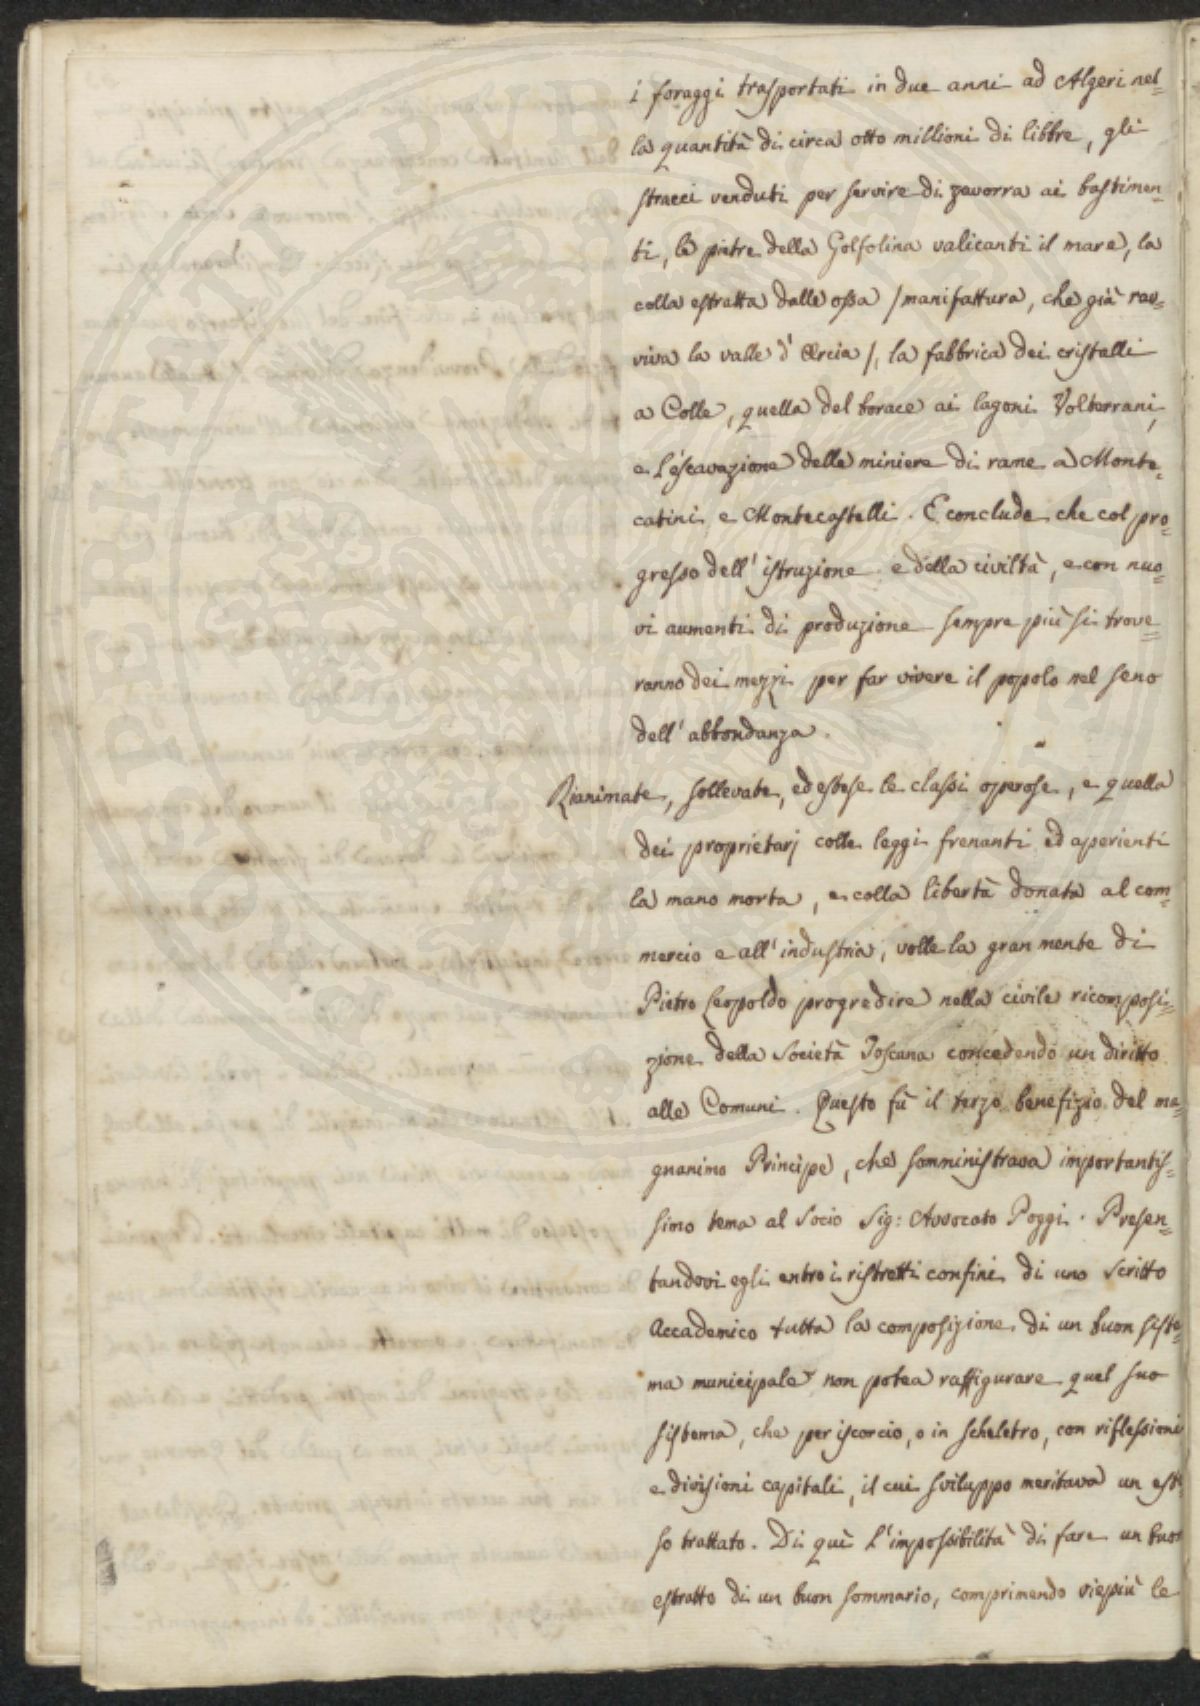 i foraggi trasportati in due anni ad Algeri nel=
la quantità di circa otto millioni di libbre, gli
stracci venduti per servire di zavorra ai bastimen=
ti, le pietre della Golfolina valicanti il mare, la
colla estratta dalle ossa /manifattura, che già rav=
viva la valle d'Orcia/, la fabbrica dei cristalli
a Colle, quella del borace ai lagoni Volterrani,
e l'escavazione delle miniere di rame a Monte=
catini e Montecastelli. E conclude che col pro=
gresso dell'istruzione e della civiltà, e con nuo=
vi aumenti di produzione sempre più si trove=
ranno dei mezzi per far vivere il popolo nel seno
dell'abbondanza.
Rianimate, sollevate, ed estese le classi operose, e quella
dei proprietarj colle leggi frenanti ed aperienti
la mano morta, e colla libertà donata al com=
mercio e all'industria, volle la gran mente di
Pietro Leopoldo progredire nella civile ricomposi=
zione della Società Toscana concedendo un diritto
alle Comuni. Questo fù il terzo benefizio del ma=
gnanimo Principe, che somministrava importantis=
simo tema al Socio Sig: Avvocato Poggi. Presen=
tandovi egli entro i ristretti confini di uno scritto
Accademico tutta la composizione di un buon siste=
ma municipale non potea raffigurare quel suo
sistema, che per iscorcio, o in scheletro, con riflessioni
e divisioni capitali, il cui sviluppo meritava un est
so trattato. Di quì l'impossibilità di fare un buon
estratto di un buon sommario, comprimendo viepiù le